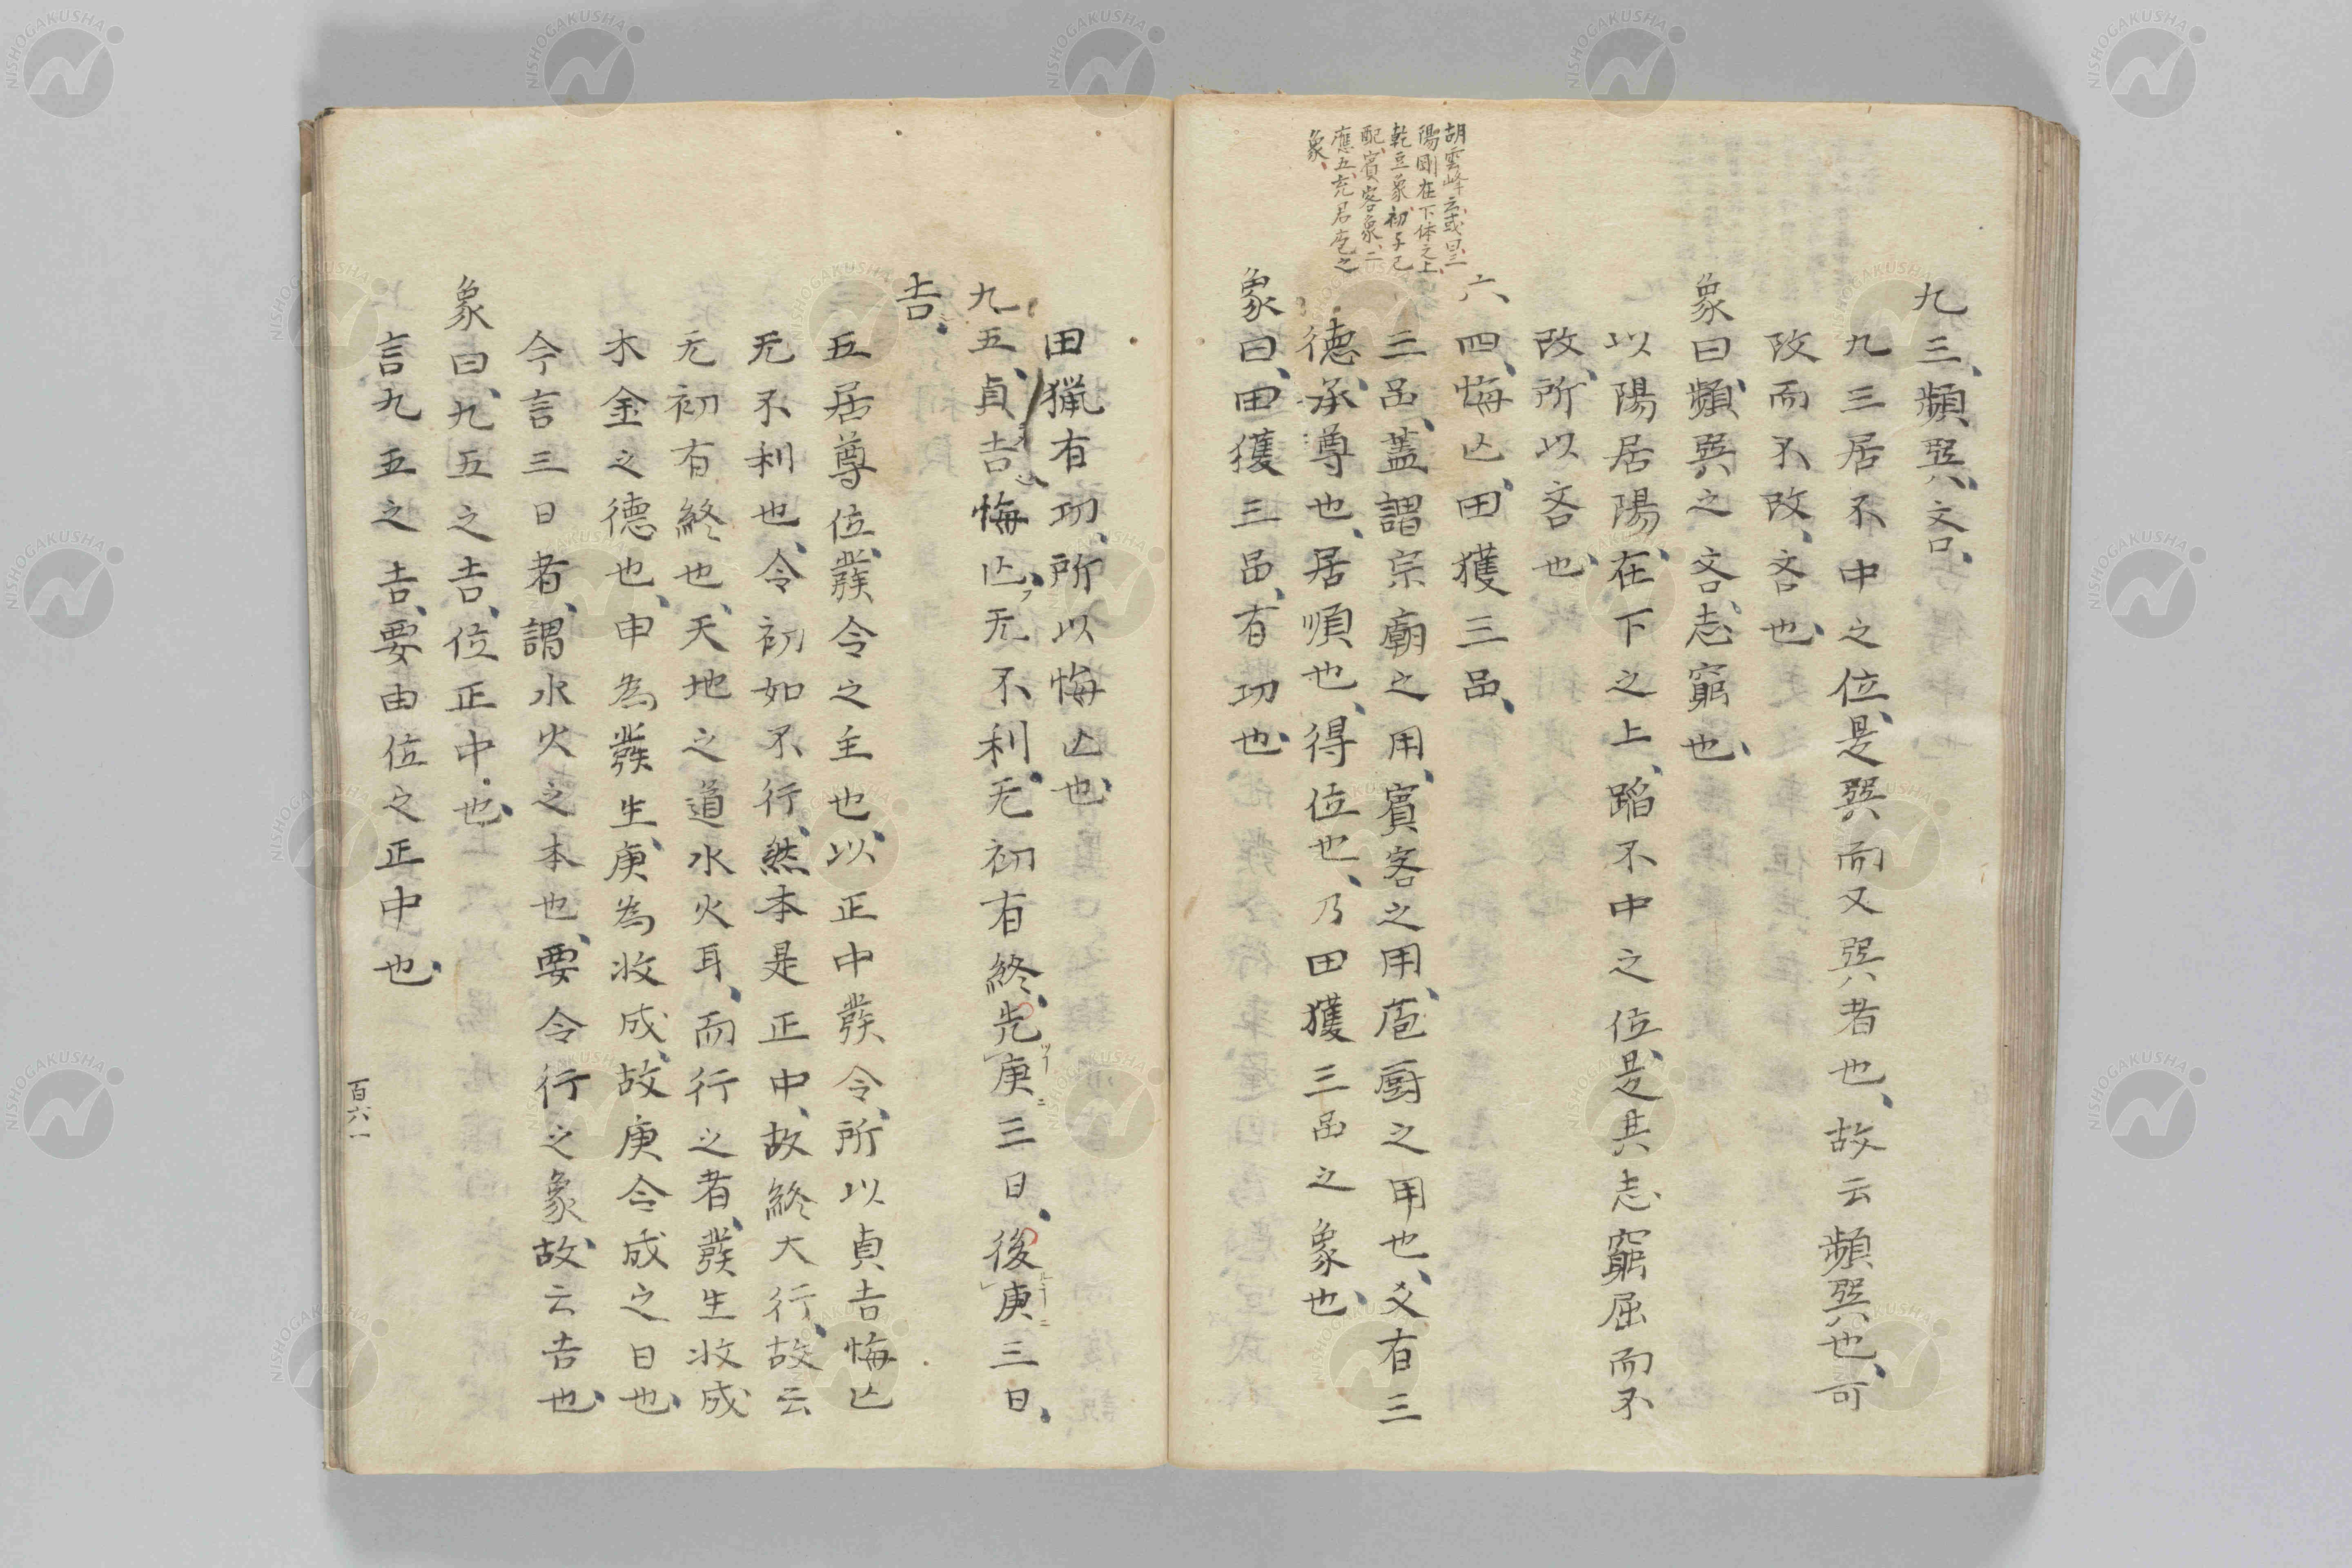 九三、頻巽、吝、
九三居不中之位、是巽而又巽者也、故云頻巽也、可
改而不改、吝也、
象曰、頻巽之吝、志窮也、
以陽居陽、在下之上、蹈不中之位、是其志窮屈而不
改、所以吝也、
胡雲峰云、或曰、三
陽剛在下体之上、
乾豆象、初子己
配、賓客象、二
應五、充君庖之
象、
六四、悔亾、田獲三品、
三品、蓋謂宗廟之用、賓客之用、庖厨之用也、爻有三
德、承尊也、居順也、得位也、乃田獲三品之象也、
象曰、田獲三品、有功也、
田獵有功、所以悔亾也、
九五、貞吉、悔亾、无不利、无初有終、先庚三日、後庚三日、
吉、
五居尊位、發令之主也、以正中發令、所以貞吉悔亾
无不利也、令初如不行、然本是正中、故終大行、故云
无初有終也、天地之道水火耳、而行之者、發生收成
木金之德也、申為發生、庚為收成、故庚令成之日也、
今言三日者、謂水火之本也、要令行之象、故云吉也、
象曰、九五之吉、位正中也、
言九五之吉、要由位之正中也、
百六一
NISHOGAKUSHA